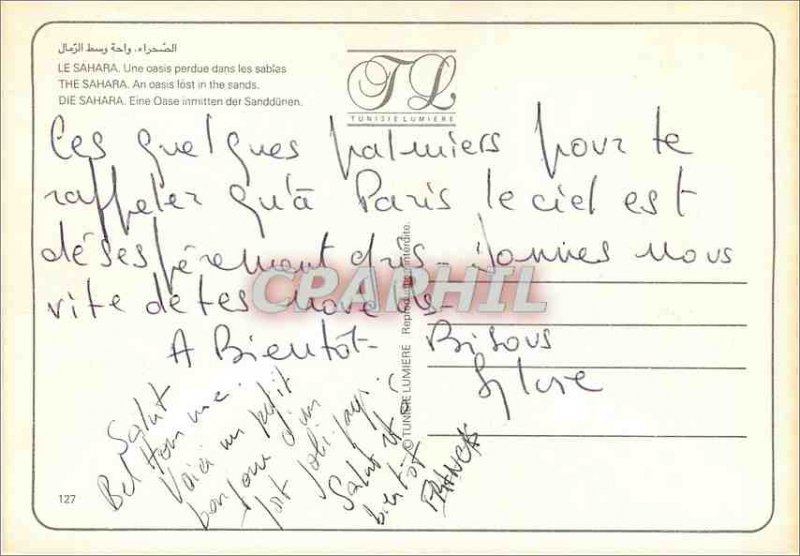 الصّحراء، واحة وسط الرّمال
LE SAHARA. Une oasis perdue dans les sables
THE SAHARA. An oasis lost in the sands.
DIE SAHARA. Eine Oase inmitten der Sanddünen.
TL
TUNISIE LUMIERE
Ces quelques palmiers pour te
rappeler qu'à Paris le ciel est
désespérement gris - donnes nous
vite de tes
A Bientôt - Bisous
CPARHIL
© TUNISIE LUMIERE Reproduction interdite.
Salut
Bel Homme.
Voici un petit
bonjour d'un
joli pays.
Salut et à
bientôt
127